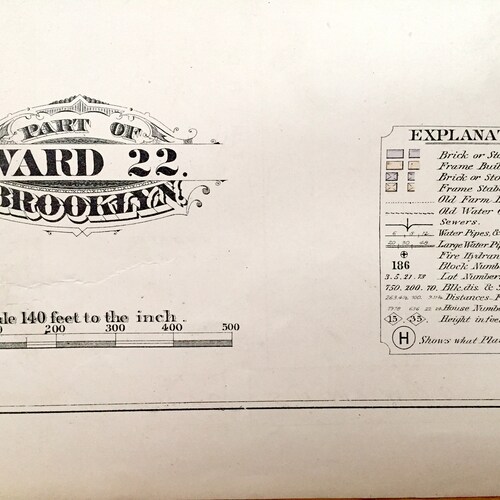 PART OF
WARD 22.
BROOKLYN.
140 feet to the inch.
200 300 400 500
EXPLANAT
Brick or Sto
Frame Buil
Brick or Sto
Frame Stab
Old Farm
Old Water
Sewers.
6 8 12 Water Pipes, &
20 30 48 Large Water Pi
Fire Hydran
186 Block Numb
3. 5. 21. 73 Lot Number
750. 200. 70. Blk. dis. & S
Distances
House Numb
15. 35. Height in fee
H Shows what Plat